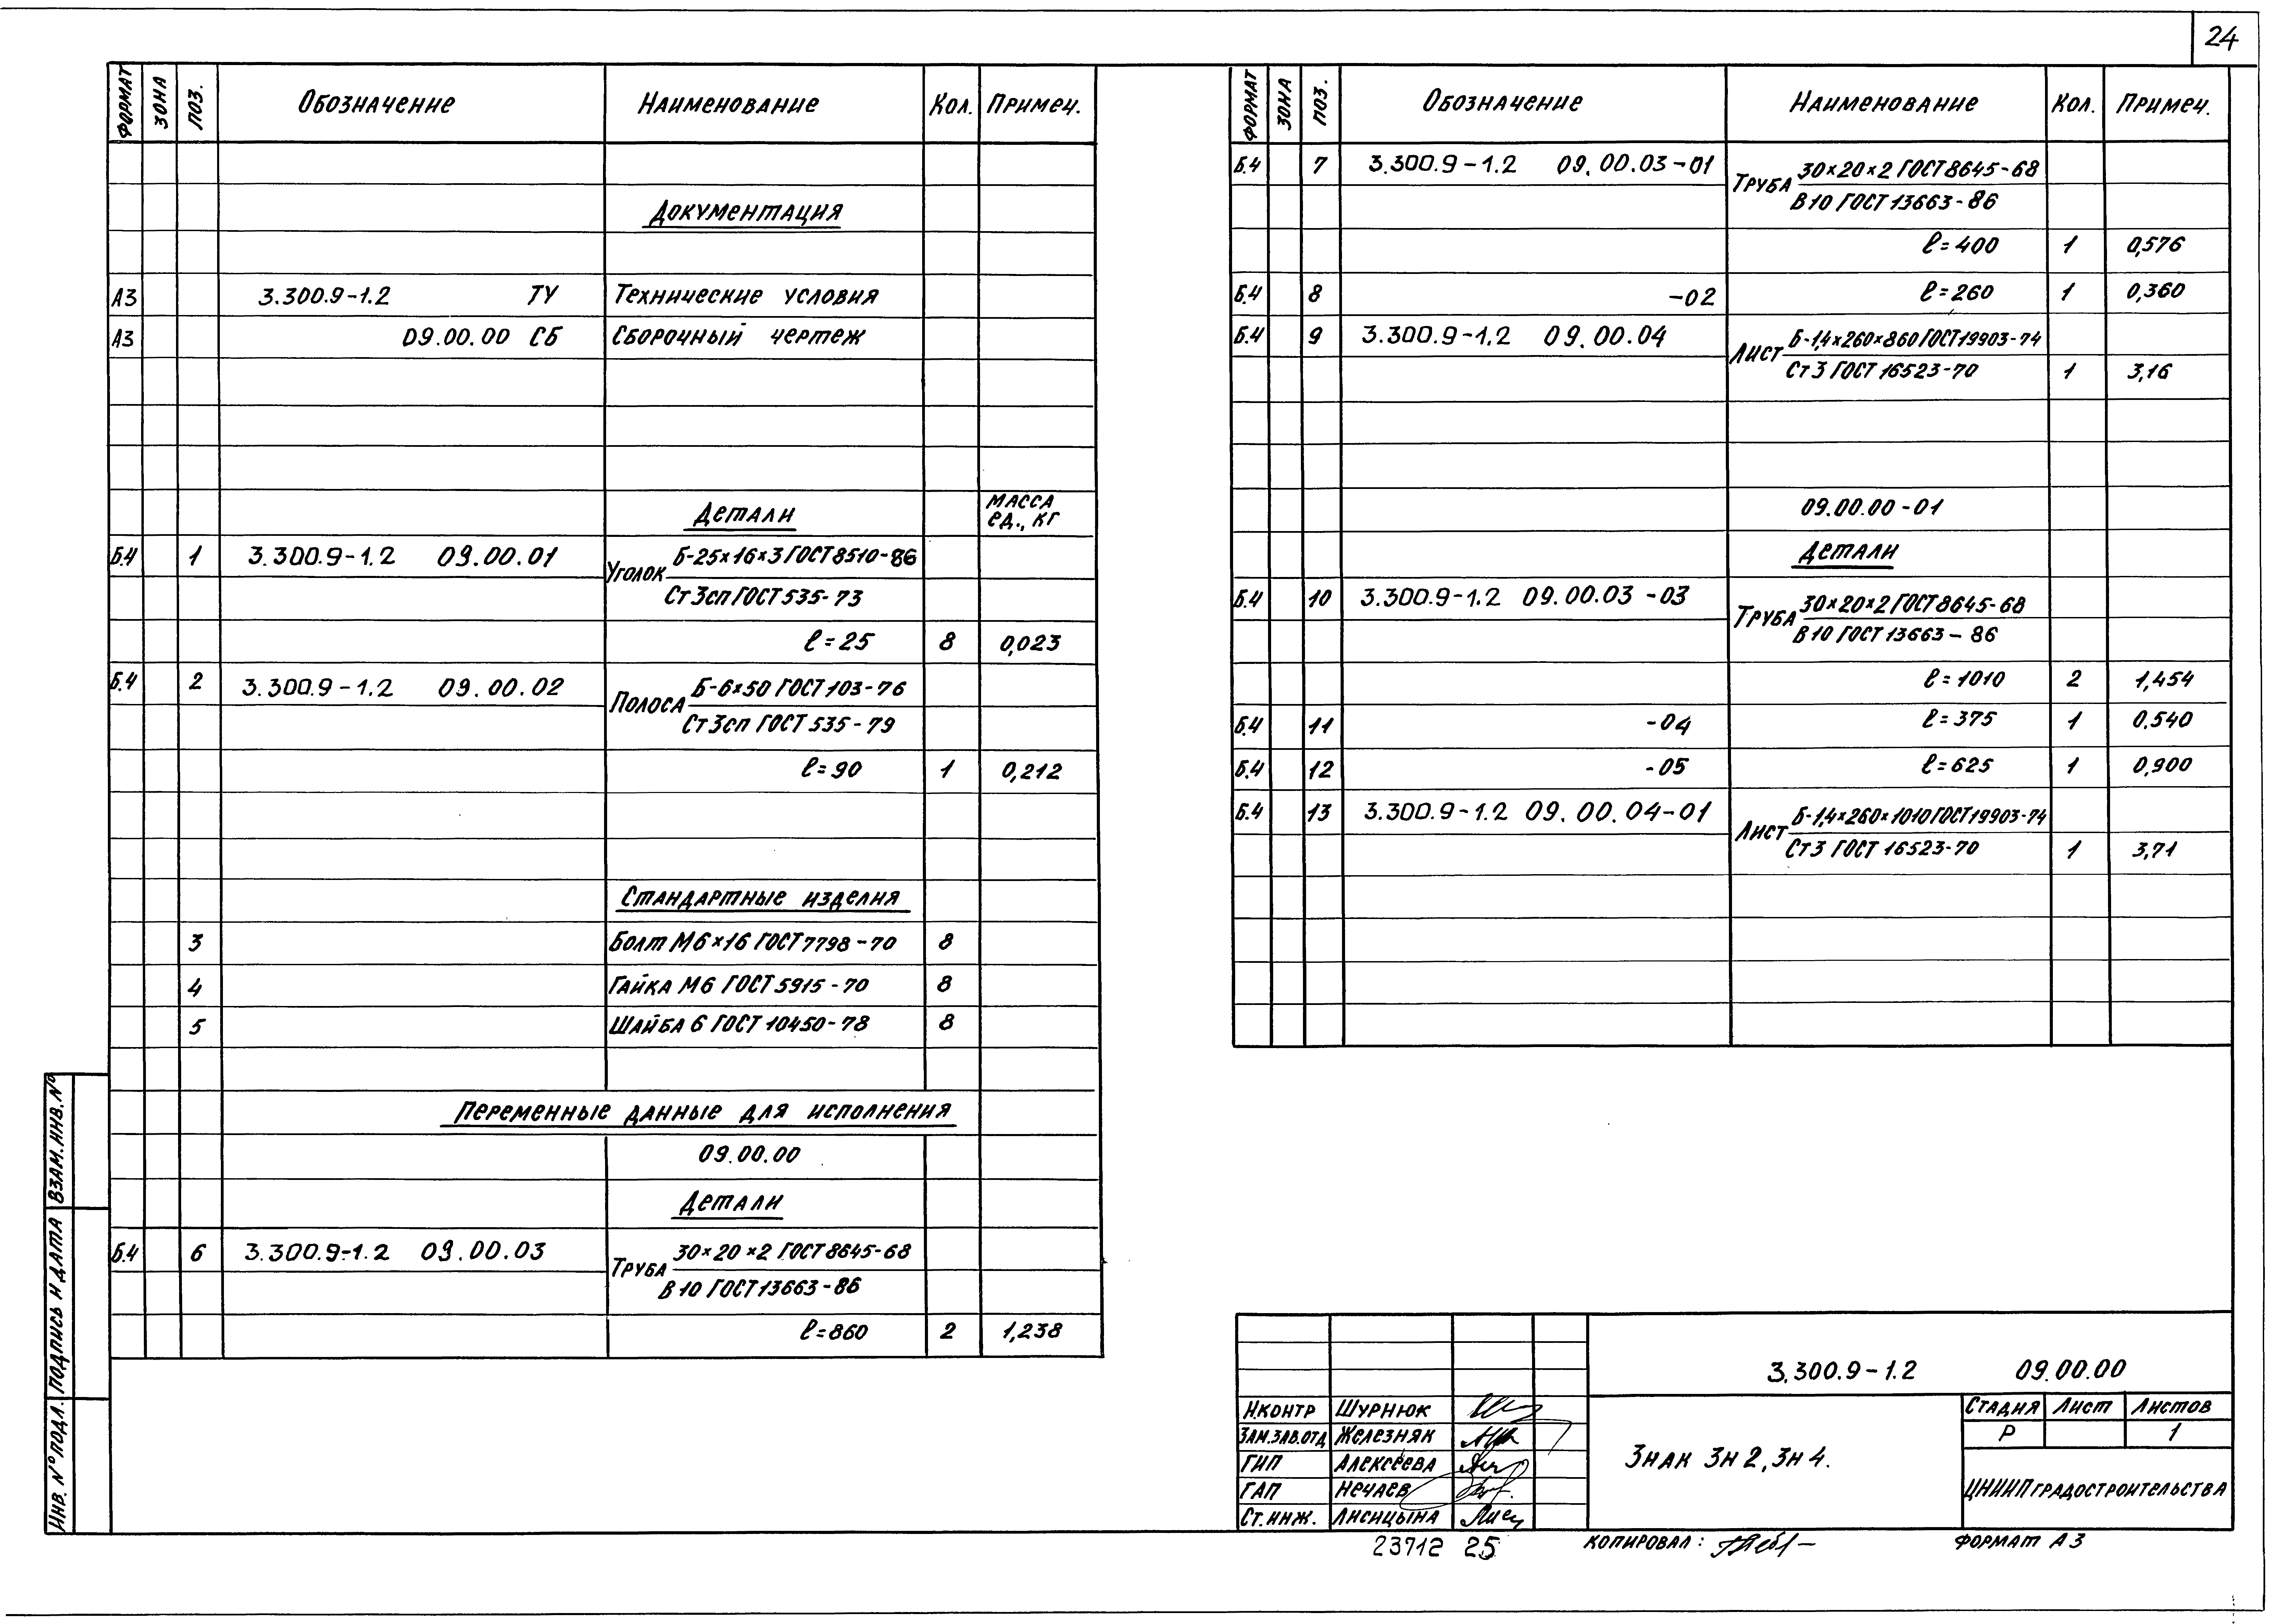 24
ФОРМАТ ЗОНА ПОЗ. Обозначение Наименование Кол. Примеч.
Документация
А3 3.300.9-1.2 ТУ Технические условия
А3 09.00.00 СБ Сборочный чертеж
Детали Масса ед., кг
Б.4 1 3.300.9-1.2 09.00.01 Уголок Б-25×16×3 ГОСТ 8510-86
Ст3сп ГОСТ 535-73
ℓ=25 8 0,023
Б.4 2 3.300.9-1.2 09.00.02 Полоса Б-6×50 ГОСТ 103-76
Ст3сп ГОСТ 535-79
ℓ=90 1 0,212
Стандартные изделия
3 Болт М6×16 ГОСТ 7798-70 8
4 Гайка М6 ГОСТ 5915-70 8
5 Шайба 6 ГОСТ 10450-78 8
Переменные данные для исполнения
09.00.00
Детали
Б.4 6 3.300.9-1.2 09.00.03 Труба 30×20×2 ГОСТ 8645-68
В10 ГОСТ 13663-86
ℓ=860 2 1,238
ФОРМАТ ЗОНА ПОЗ. Обозначение Наименование Кол. Примеч.
Б.4 7 3.300.9-1.2 09.00.03-01 Труба 30×20×2 ГОСТ 8645-68
В10 ГОСТ 13663-86
ℓ=400 1 0,576
Б.4 8 -02 ℓ=260 1 0,360
Б.4 9 3.300.9-1.2 09.00.04 Лист Б-1,4×260×860 ГОСТ 19903-74
Ст3 ГОСТ 16523-70 1 3,16
09.00.00-01
Детали
Б.4 10 3.300.9-1.2 09.00.03-03 Труба 30×20×2 ГОСТ 8645-68
В10 ГОСТ 13663-86
ℓ=1010 2 1,454
Б.4 11 -04 ℓ=375 1 0.540
Б.4 12 -05 ℓ=625 1 0,900
Б.4 13 3.300.9-1.2 09.00.04-01 Лист Б-1,4×260×1010 ГОСТ 19903-74
Ст3 ГОСТ 16523-70 1 3,71
ИНВ. № ПОДЛ. ПОДПИСЬ И ДАТА ВЗАМ. ИНВ. №
3.300.9-1.2 09.00.00
Н.контр Шурнюк
Зам.зав.отд Железняк
ГИП Алексеева
ГАП Нечаев
Ст.инж. Лисицына
Знак Зн 2, Зн 4.
Стадия Лист Листов
Р 1
ЦНИИП градостроительства
23712 25 Копировал: Формат А3